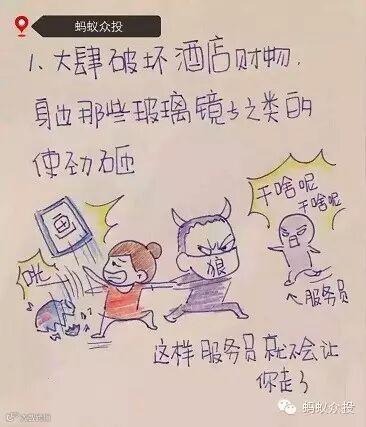 蚂蚁众投
1、大肆破坏酒店财物,
身边那些玻璃镜子之类的
使劲砸
画
干啥呢
干啥呢
狼
吡
←服务员
这样服务员就不会让
你走了
蚂蚁众投